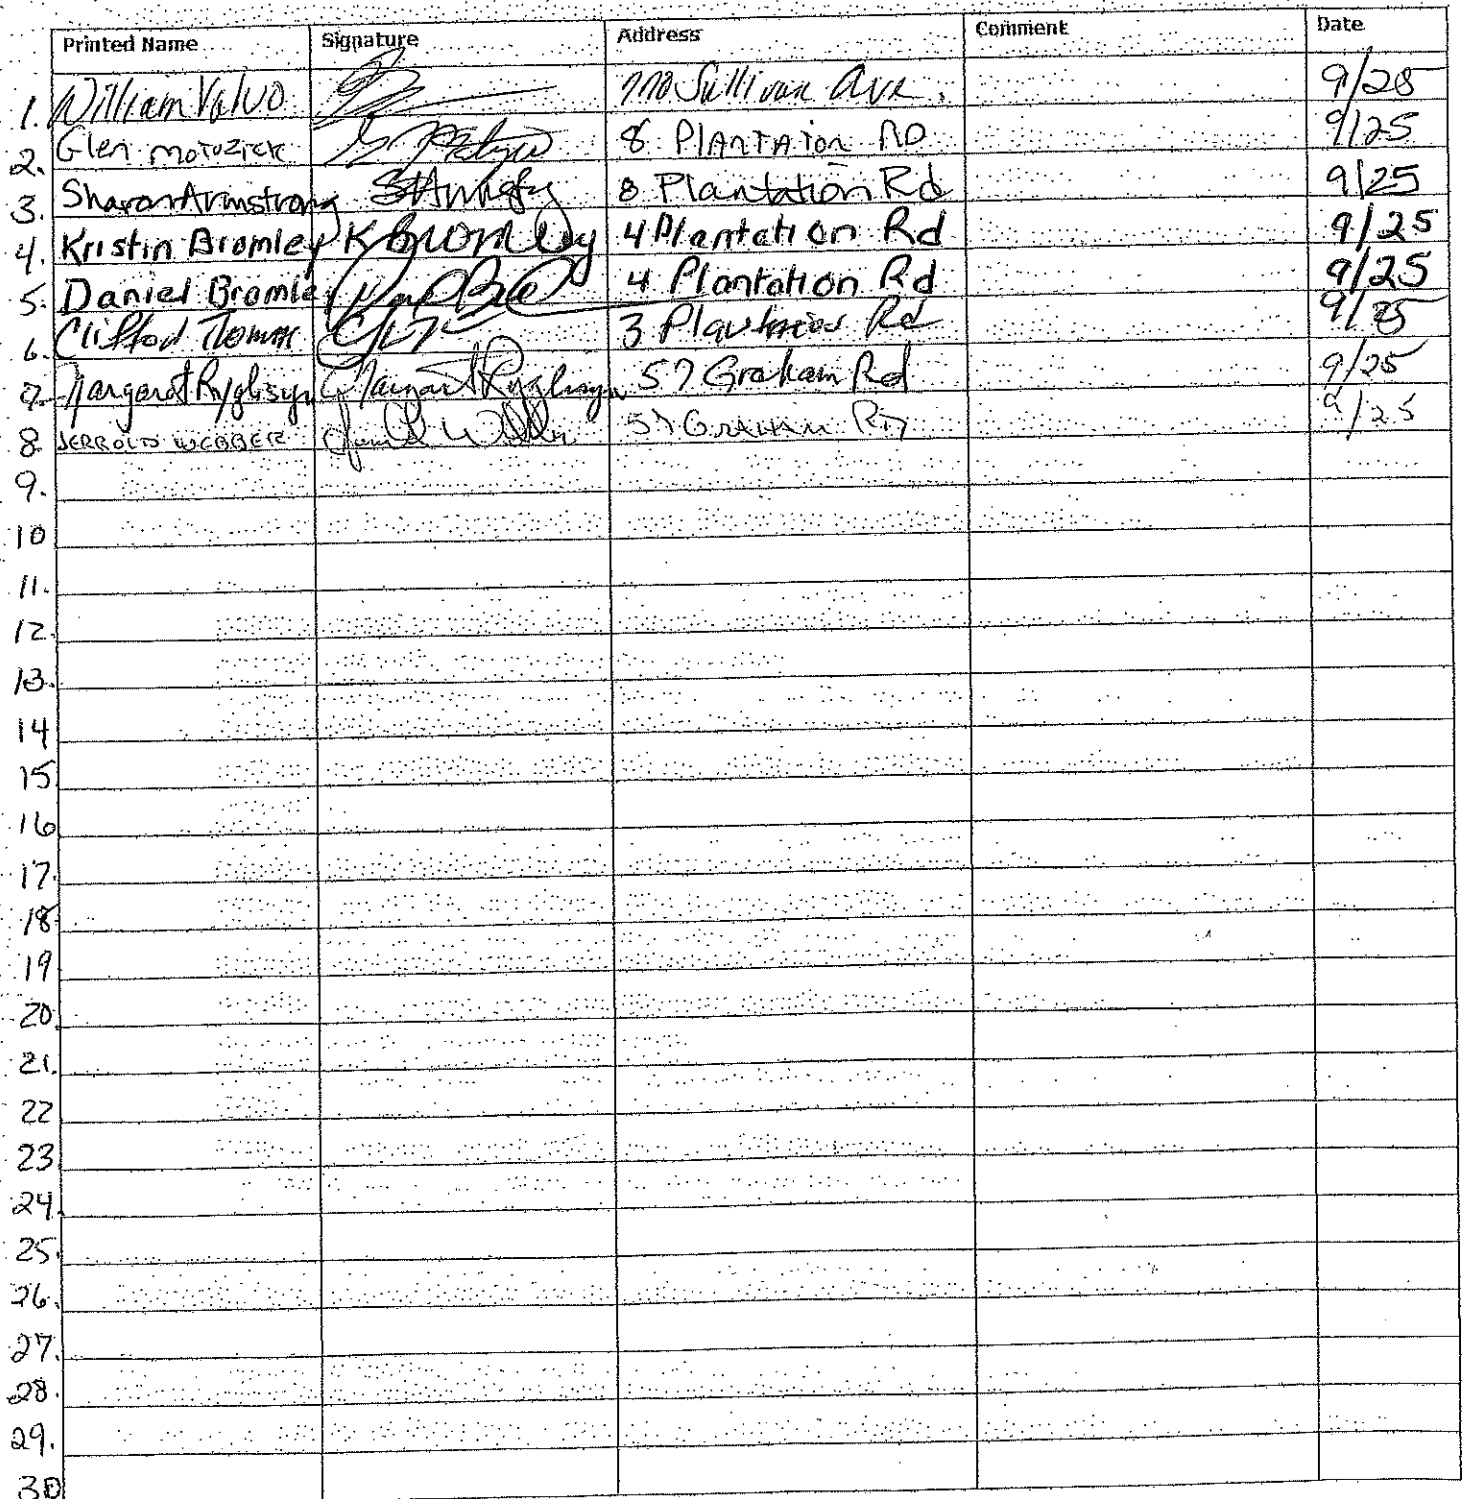 Printed Name Signature Address Comment Date
1. William Valvo Sullivan Ave. 9/25
2. Glen Motuzick 8 Plantation RD 9/25
3. Sharon Armstrong 8 Plantation Rd 9/25
4. Kristin Bromley K Bromley 4 Plantation Rd 9/25
5. Daniel Bromley 4 Plantation Rd 9/25
6. Clifford Thomas 3 Plantation Rd 9/25
7. Margaret Ryglisyn Margaret Ryglisyn 57 Graham Rd 9/25
8. JERROLD WEBBER 57 Graham Rd 9/25
9.
10
11.
12.
13.
14
15.
16
17.
18
19
20.
21.
22
23
24.
25.
26.
27.
28.
29.
30